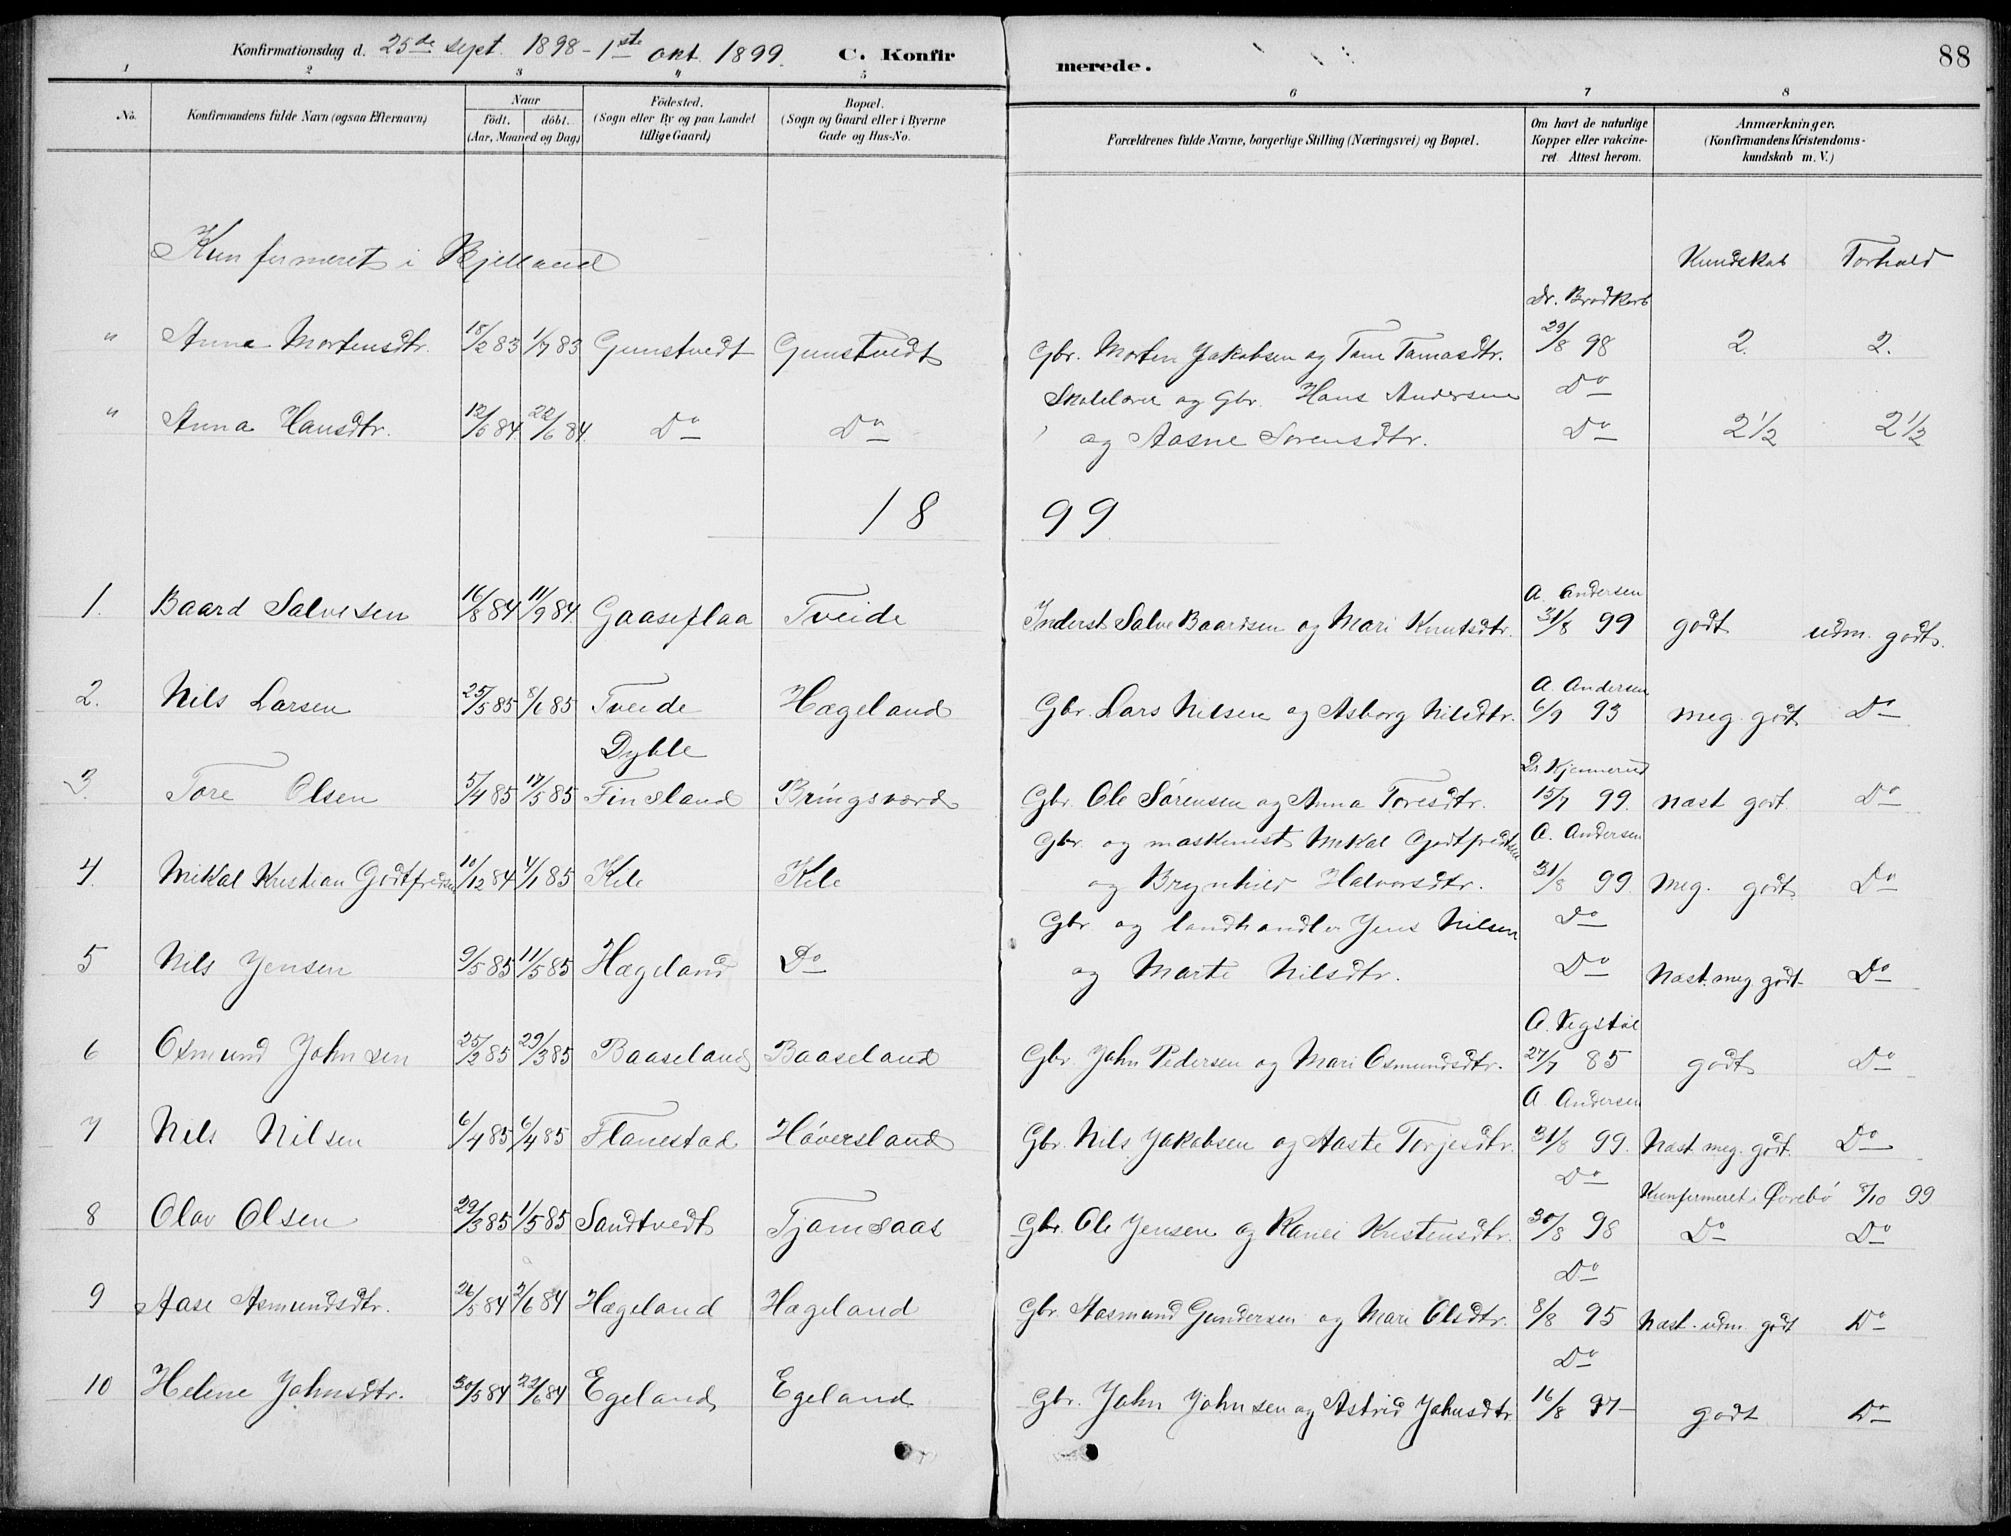 Konfirmationsdag d. 25de sept. 1898 - 1ste okt. 1899. C. Konfirmerede. 88
1 2 3 4 5 6 7 8
No. Konfirmandens fulde Navn (ogsaa Efternavn) Naar födt. döbt. (Aar, Maaned og Dag) Födested. (Sogn eller By og paa Landet tillige Gaard) Bopæl. (Sogn og Gaard eller i Byerne Gade og Hus-No. Forældrenes fulde Navne, borgerlige Stilling (Næringsvei) og Bopæl. Om havt de naturlige Kopper eller vakcineret Attest herom. Anmærkninger. (Konfirmandens Kristendomskundskab m. V.)
Kunfermeret i Bjelland Kundskab Forhold
Dr. Brodkorb
" Anna Mortensdtr. 18/2 83 1/7 83 Gunstvedt Gunstvedt Gbr. Morten Jakobsen og Tane Tamasdtr. 29/8 98 2. 2.
Skolelærer og Gbr. Hans Andersen Do
" Anna Hansdtr. 12/5 84 22/6 84 Do Do og Aasne Sørensdtr. Do 2 1/2 2 1/2
18 99
A. Andersen
1. Baard Salvesen 16/8 84 11/9 84 Gaaseflaa Tveide Inderst Salve Baardsen og Mari Knutsdtr. 31/8 99 godt udm. godt.
A. Andersen
2. Nils Larsen 25/5 85 8/6 85 Tveide Hægeland Gbr. Lars Nilsen og Asborg Nilsdtr. 6/9 93 meg. godt Do
Dyble Dr Kjennerud
3 Tore Olsen 5/4 85 17/5 85 Finsland Bringsværd Gbr. Ole Sørensen og Anna Toresdtr. 15/7 99. næst godt Do
Gbr. og maskinist Mikal Godtfredsen A. Andersen
4. Mikal Kristian Godtfredsen 10/12 84 4/1 85 Kile Kile og Brynhild Halvorsdtr. 31/8 99. meg. godt Do
Gbr. og landhandler Jens Nilsen Do
5 Nils Jensen 9/5 85 11/5 85 Hægeland Do og Marte Nilsdtr. Do Næst. meg godt Do
A. Vegstøl
6 Osmund Johnsen 25/2 85 29/3 85 Baaseland Baaseland Gbr. John Pedersen og Mari Osmundsdtr. 27/7 85 godt Do
A. Andersen
7 Nils Nilsen 6/4 85 6/4 85 Flanestad Høversland Gbr. Nils Jakobsen og Aaste Torjesdtr. 31/8 99. Næst meg. godt. Do
Do Kunfermeret i Øvrebö 8/10 99
8 Olav Olsen 29/3 85 1/5 85 Sandtvedt Tjomsaas Gbr. Ole Jensen og Ranei Kristensdtr. 30/8 98 Do Do
Do
9 Aase Asmundsdtr. 26/5 84 2/6 84 Hægeland Hægeland Gbr. Aasmund Gundersen og Mari Olsdtr. 8/8 95 Næst. udm. godt Do
Do
10 Helene Johnsdtr. 30/5 84 22/6 84 Egeland Egeland Gbr. John Johnsen og Astrid Johnsdtr 16/8 97 godt Do